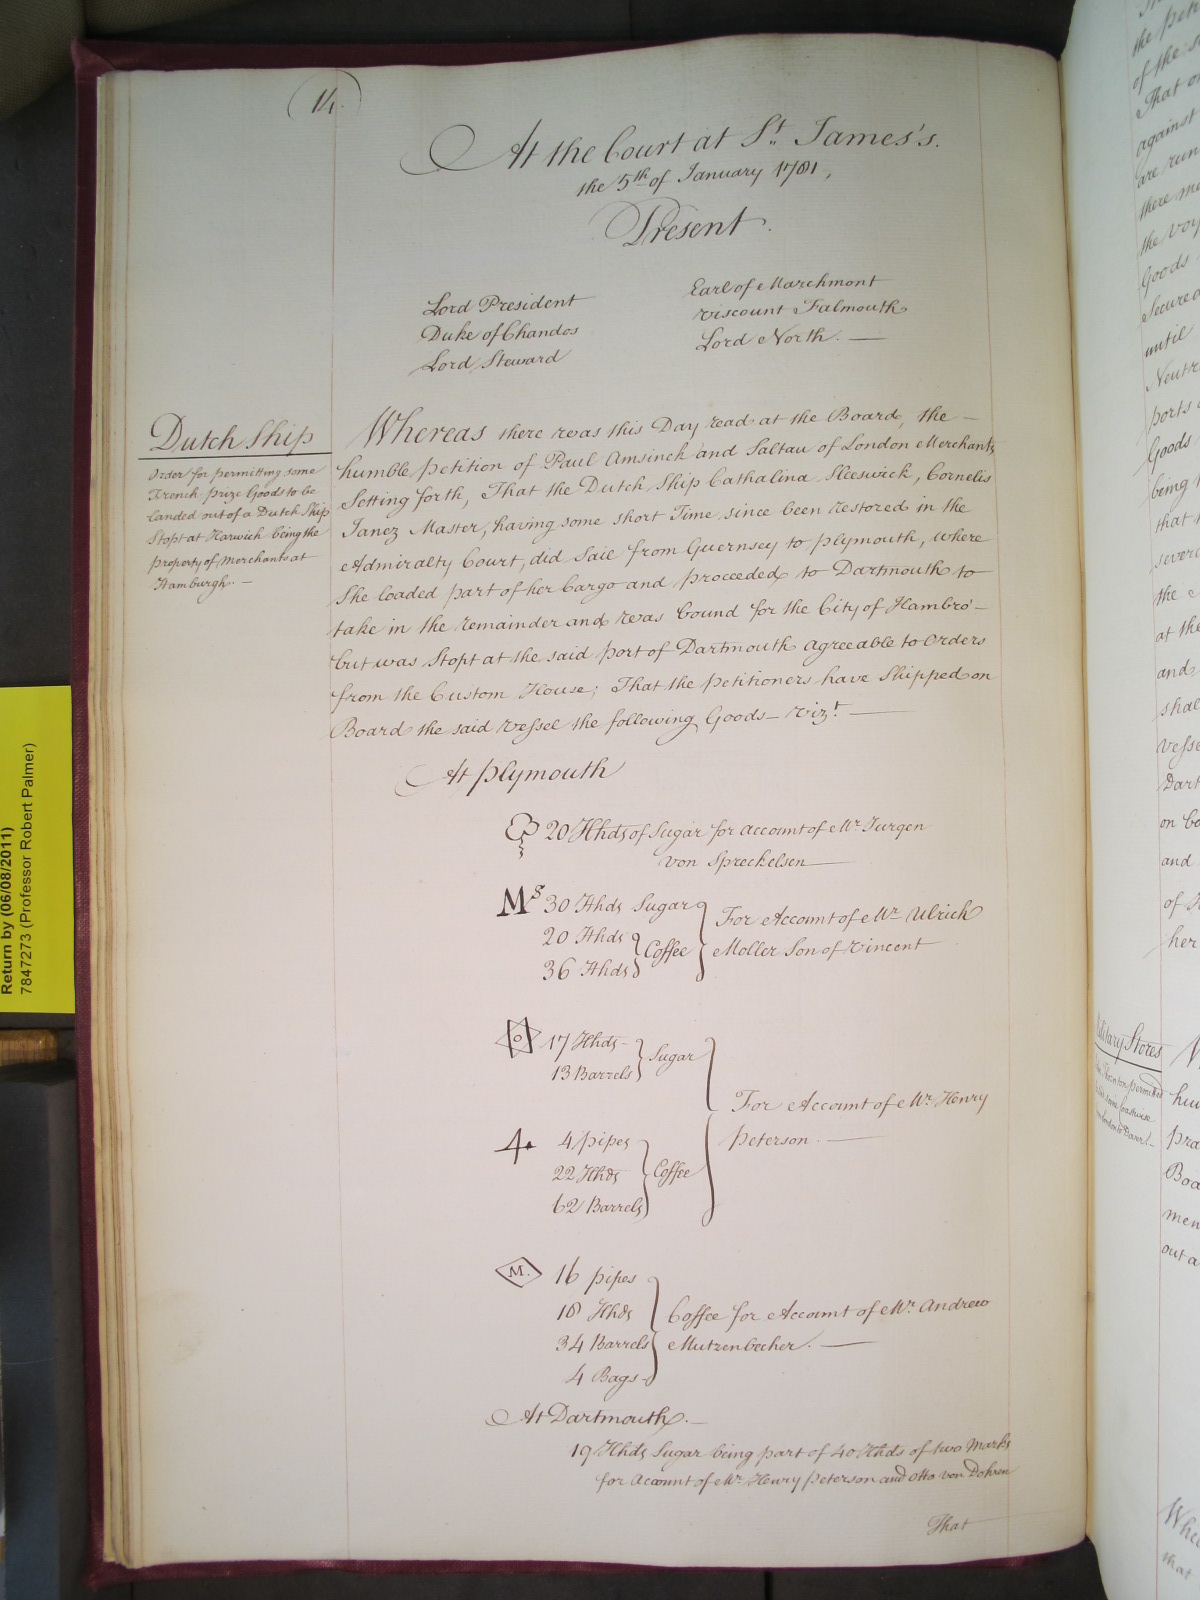 14.
At the Court at St. James's.
the 5th of January 1781,
Present.
Lord President
Duke of Chandos
Lord Steward
Earl of Marchmont
Viscount Falmouth
Lord North. —
Dutch Ship
Order for permitting some
French prize Goods to be
landed out of a Dutch Ship
Stopt at Harwich being the
property of Merchants at
Hamburgh. —
Whereas there was this Day read at the Board, the —
humble petition of Paul Amsinck and Saltau of London Merchants
Setting forth, That the Dutch Ship Cathalina Sleeswick, Cornelis
Janez Master, having some short Time since been restored in the
Admiralty Court, did Sail from Guernsey to Plymouth, where
She loaded part of her Cargo and proceeded to Dartmouth to
take in the remainder and was bound for the City of Hambro' —
but was Stopt at the said port of Dartmouth agreeable to Orders
from the Custom House; That the petitioners have Shipped on
Board the said Vessel the following Goods — Vizt. —
At Plymouth
20 Hhds of Sugar for account of Mr. Jurgen
von Spreckelsen —
MS 30 Hhds Sugar
20 Hhds
36 Hhds
Coffee
For Account of Mr. Ulrich
Moller Son of Vincent
O 17 Hhds
13 Barrels
Sugar
4 4 pipes
22 Hhds
62 Barrels
Coffee
For Account of Mr. Henry
Peterson. —
M. 16 pipes
18 Hhds
34 Barrels
4 Bags
Coffee for Account of Mr. Andrew
Mutzenbecher. —
At Dartmouth. —
19 Hhds Sugar being part of 40 Hhds of two Marks
for Account of Mr. Henry Peterson and Otto von Dohren
That
Return by (06/08/2011)
7847273 (Professor Robert Palmer)
the peti
of the s
That o
against
are run
there me
the voy
Goods
Secured
until
Neutr
ports
Goods
being
that
severa
the
at the
and
shal
Vesse
Dart
on bo
and
of
her
Military Stores
hu
pra
Boa
men
out a
Whe
that